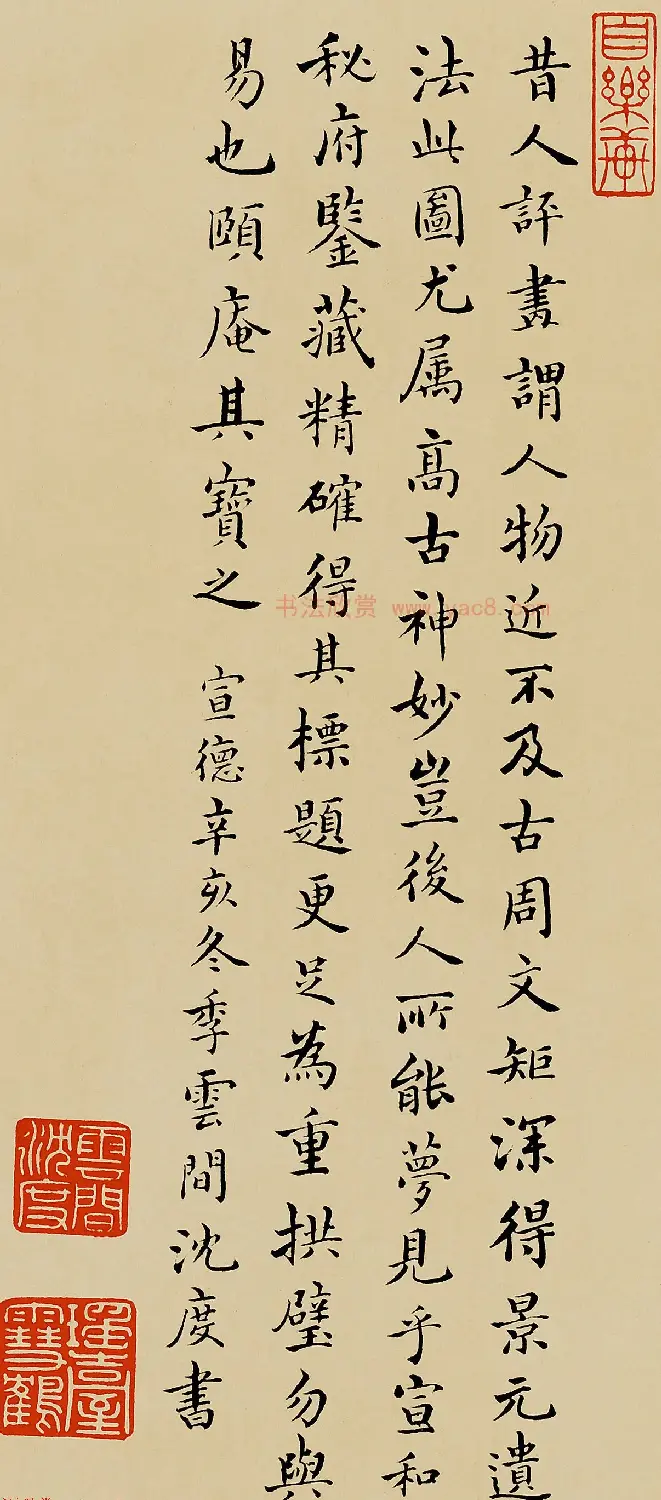 自樂庵
昔人評畫謂人物近不及古周文矩深得景元遺
法此圖尤属髙古神妙豈後人所能夢見乎宣和
秘府鑒藏精確得其標題更足為重拱璧勿與
易也頤庵其寶之 宣德辛亥冬季雲間沈度書
雲間沈度
书法欣赏 www.yac8.com